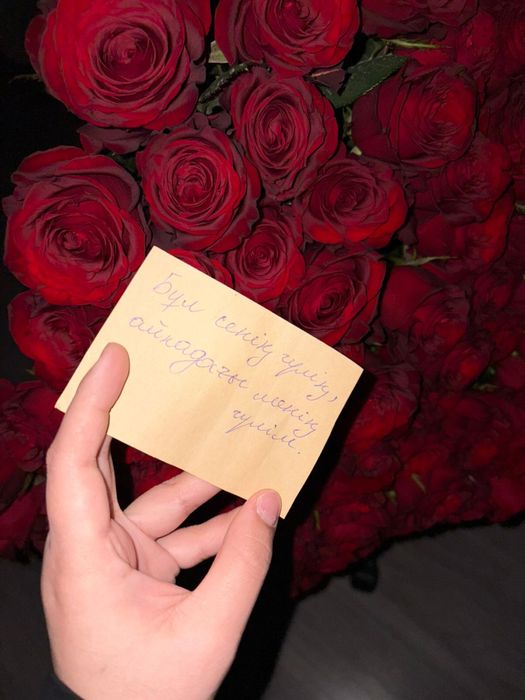 Бұл сенің гүлің,
айнадағы менің
гүлім.